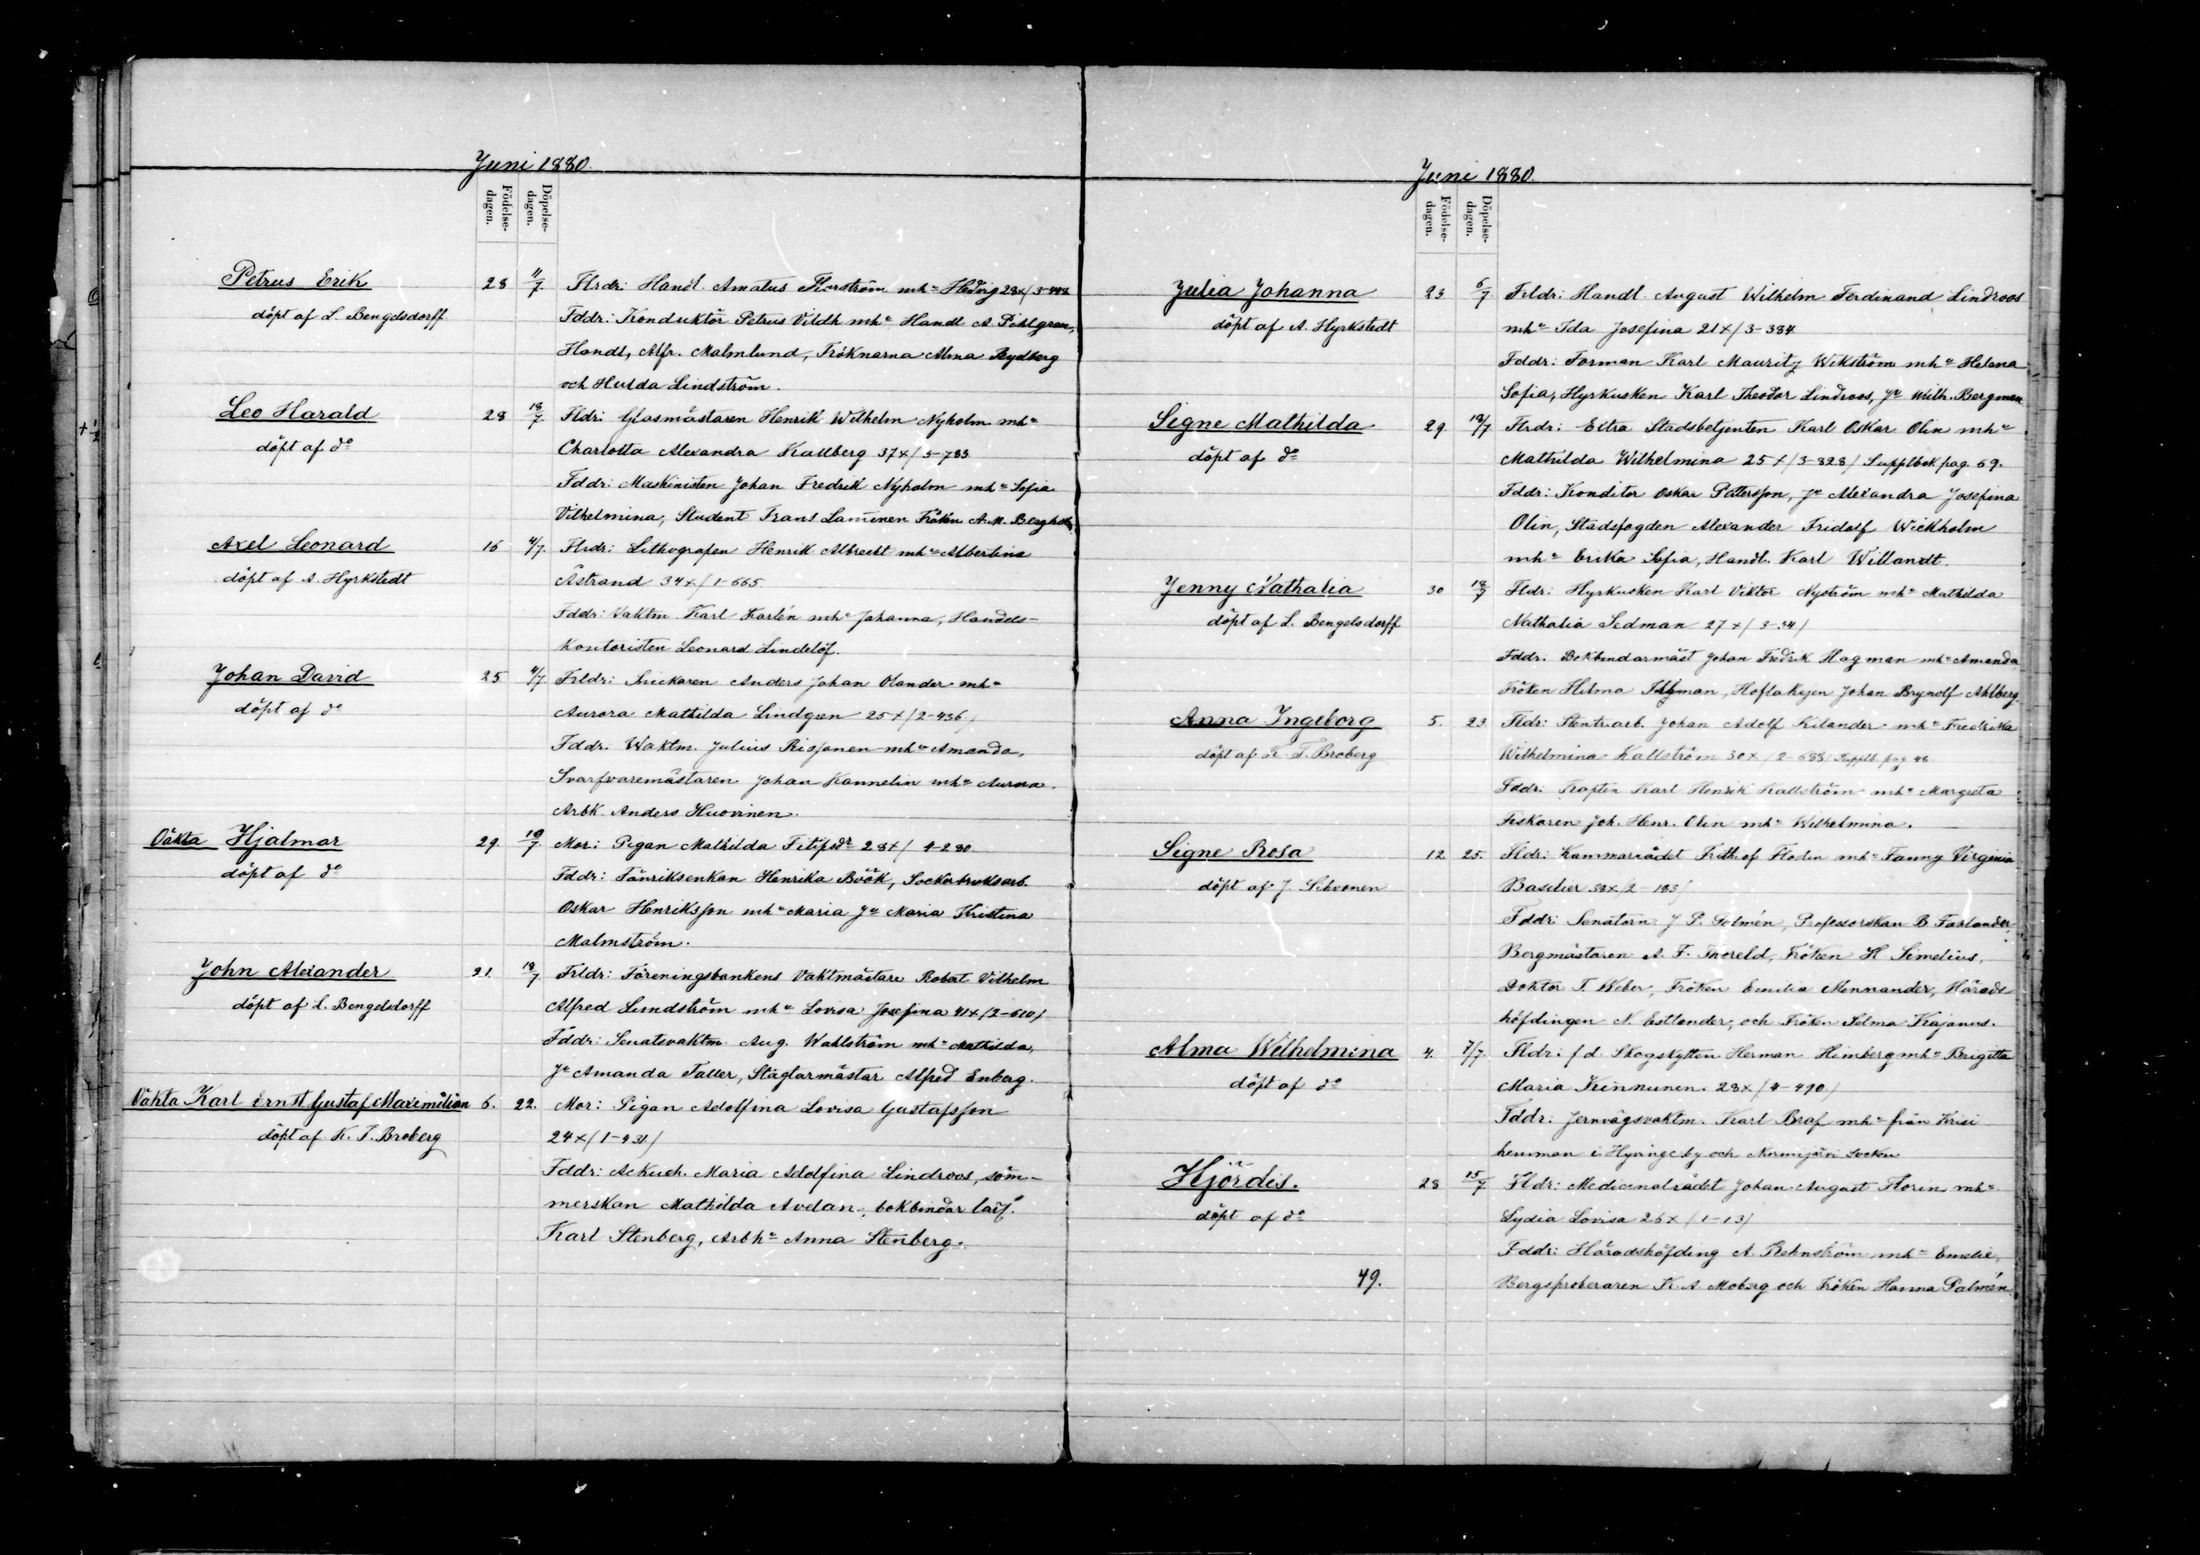 Juni 1880.
Födelse-
dagen.
Döpelse-
dagen.
Petrus Erik 28 11/7 Flrdr: Handl. Amatus Florström mha Hedvig 28x/3-448
döpt af L. Bengelsdorff Fddr: Konduktör Petrus Vildh mha Handl A. Pihlgren,
Handl, Alfr. Malmlund, Fröknarna Alma Rydberg
och Hulda Lindström.
Leo Harald 28 18/7 Fldr: Glasmästaren Henrik Wilhelm Nyholm mha
döpt af do Charlotta Alexandra Kallberg 37x/3-783
Fddr: Maskinisten Johan Fredrik Nyholm mha Sofia
Vilhelmina, Student Frans Laminen Fröken A. M. Bergholm
Axel Leonard 16 4/7. Flrdr: Lithografen Henrik Albrecht mha Albertina
döpt af A. Hyrkstedt Åstrand 34x/1-665
Fddr: Vaktm Karl Karlén mha Johanna, Handels-
kontoristen Leonard Lindelöf.
Johan David 25 4/7 Frldr: Snickaren Anders Johan Olander mha
döpt af do Aurora Mathilda Lindgren 25x/2-436/
Fddr. Waktm. Julius Rissanen mha Amanda,
Svarfvaremästaren Johan Kannelin mha Aurora.
Arbk. Anders Huovinen.
Oäkta Hjalmar 29 19/7 Mor: Pigan Mathilda Filipsdr 28x/ 4-280
döpt af do Fddr: Fänriksenkan Henrika Böök, Sockerbruksarb.
Oskar Henriksson mha Maria Ja Maria Kristina
Malmström.
John Alexander 21. 18/7 Frldr: Föreningsbankens Vaktmästare Robert Vilhelm
döpt af L. Bengelsdorff Alfred Lundström mha Lovisa Josefina 41x/2-610/
Fddr: Senatsvaktm. Aug. Wahlström mha Mathilda,
Ja Amanda Faller, Släglarmästar Alfred Enberg.
Oäkta Karl Ernst Gustaf Maximilian 6. 22. Mor: Pigan Adolfina Lovisa Gustafsson
döpt af K. T. Broberg 24x/1-431/
Fddr: Ackuch. Maria Adolfina Lindroos, söm-
merskan Mathilda Avelan, bokbindar lärl.
Karl Stenberg, Arbka Anna Stenberg.
Juni 1880.
Födelse-
dagen.
Döpelse-
dagen.
Julia Johanna 23 6/7 Frldr: Handl. August Wilhelm Ferdinand Lindroos
döpt af A. Hyrkstedt mha Ida Josefina 21x/3-384
Fddr: Forman Karl Mauritz Wikström mha Helena
Sofia, Hyrkusken Karl Theodor Lindroos, Ja Wilh. Bergman
Signe Mathilda 29 18/7 Flrdr: Extra Stadsbetjenten Karl Oskar Olin mha
döpt af do Mathilda Wilhelmina 25x/3-828/ Supplbok pag. 69.
Fddr: Konditor Oskar Pettersson, Ja Alexandra Josefina
Olin, Stadsfogden Alexander Fridolf Wickholm
mha Erika Sofia, Handl. Karl Willandt.
Jenny Nathalia 30 18/7 Fldr: Hyrkusken Karl Viktor Nyström mha Mathilda
döpt af L. Bengelsdorff Nathalia Sedman 27x/3-34/
Fddr. Bokbindarmäst Johan Fredrik Hagman mha Amanda
Fröken Hilma, Hoflakejen Johan Brynolf Ahlberg.
Anna Ingeborg 5. 23. Fldr: Stentr.arb. Johan Adolf Kilander mha Fredrika
döpt af K. T. Broberg Wilhelmina Kallström 30x/2-688/ Supplb. pag 48.
Fddr. Kapten Karl Henrik Kallström mha Margreta
Fiskaren Joh. Henr. Olin mha Wilhelmina.
Signe Rosa 12 25. Fldr: Kammarrådet Frithiof Flodin mha Fanny Virginia
döpt af J. Sihvonen Basilier 38x/2-183/
Fddr: Senatorn J. P. Palmén, Professorskan B Fortlander,
Bergmästaren A. F. Thoreld, Fröken H Simelius,
Doktor T. Weber, Fröken Emilia Mennander, Härads-
höfdingen N. Estlander, och Fröken Selma Kajanus.
Alma Wilhelmina 4. 7/7. Fldr: f.d. Skogskytten Herman Heimberg mha Brigitta
döpt af do Maria Kinnunen. 28x/4-490/
Fddr: Jernvägsvaktm. Karl Braf mha från Krisi
hemman i Hyvinge by och Nurmijärvi Socken
Hjördis. 28 15/7 Fldr: Medicinalrådet Johan August Florin mha
döpt af do Lydia Lovisa 26x/1-13/
Fddr: Häradshöfding A. Rehnström mha Emelie,
49. Bergsproberaren K. A. Moberg och Fröken Hanna Palmén.